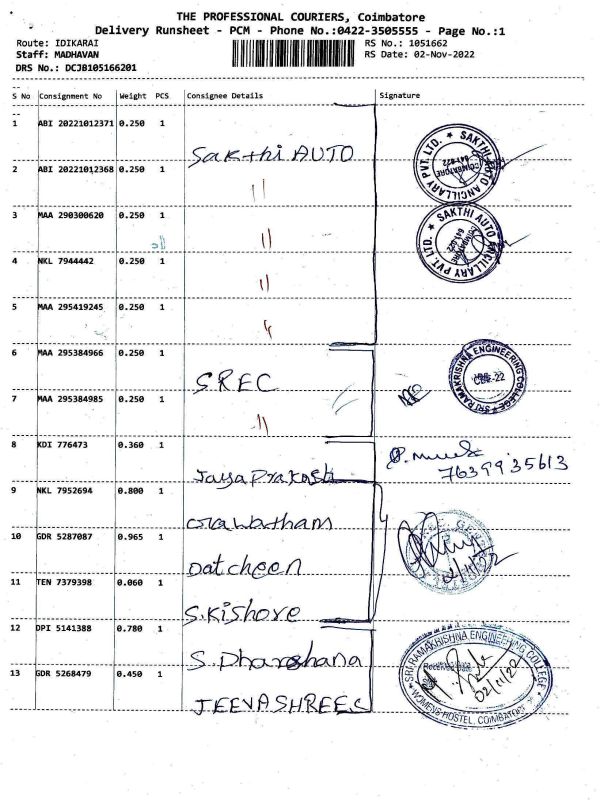 THE PROFESSIONAL COURIERS, Coimbatore
Delivery Runsheet - PCM - Phone No.:0422-3505555 - Page No.:1
Route: IDIKARAI RS No.: 1051662
Staff: MADHAVAN RS Date: 02-Nov-2022
DRS No.: DCJB105166201
S No Consignment No Weight PCS Consignee Details Signature
1 ABI 20221012371 0.250 1
Sakthi AUTO
SAKTHI AUTO ANCILLARY PVT. LTD. COIMBATORE 641-022
2 ABI 20221012368 0.250 1 "
3 MAA 290300620 0.250 1 "
SAKTHI AUTO ANCILLARY PVT. LTD. COIMBATORE 641-022
4 NKL 7944442 0.250 1 "
5 MAA 295419245 0.250 1 "
6 MAA 295384966 0.250 1
SREC
SRI RAMAKRISHNA ENGINEERING COLLEGE
7 MAA 295384985 0.250 1 "
8 KDI 776473 0.360 1
Jaya Prakash
7639935613
9 NKL 7952694 0.800 1
10 GDR 5287087 0.965 1
Datcheen
11 TEN 7379398 0.060 1
S.Kishore
12 DPI 5141388 0.780 1
S. Dharshana
SRI RAMAKRISHNA ENGINEERING COLLEGE
WOMENS HOSTEL, COIMBATORE
02/11/22
13 GDR 5268479 0.450 1
JEEVASHREE.S